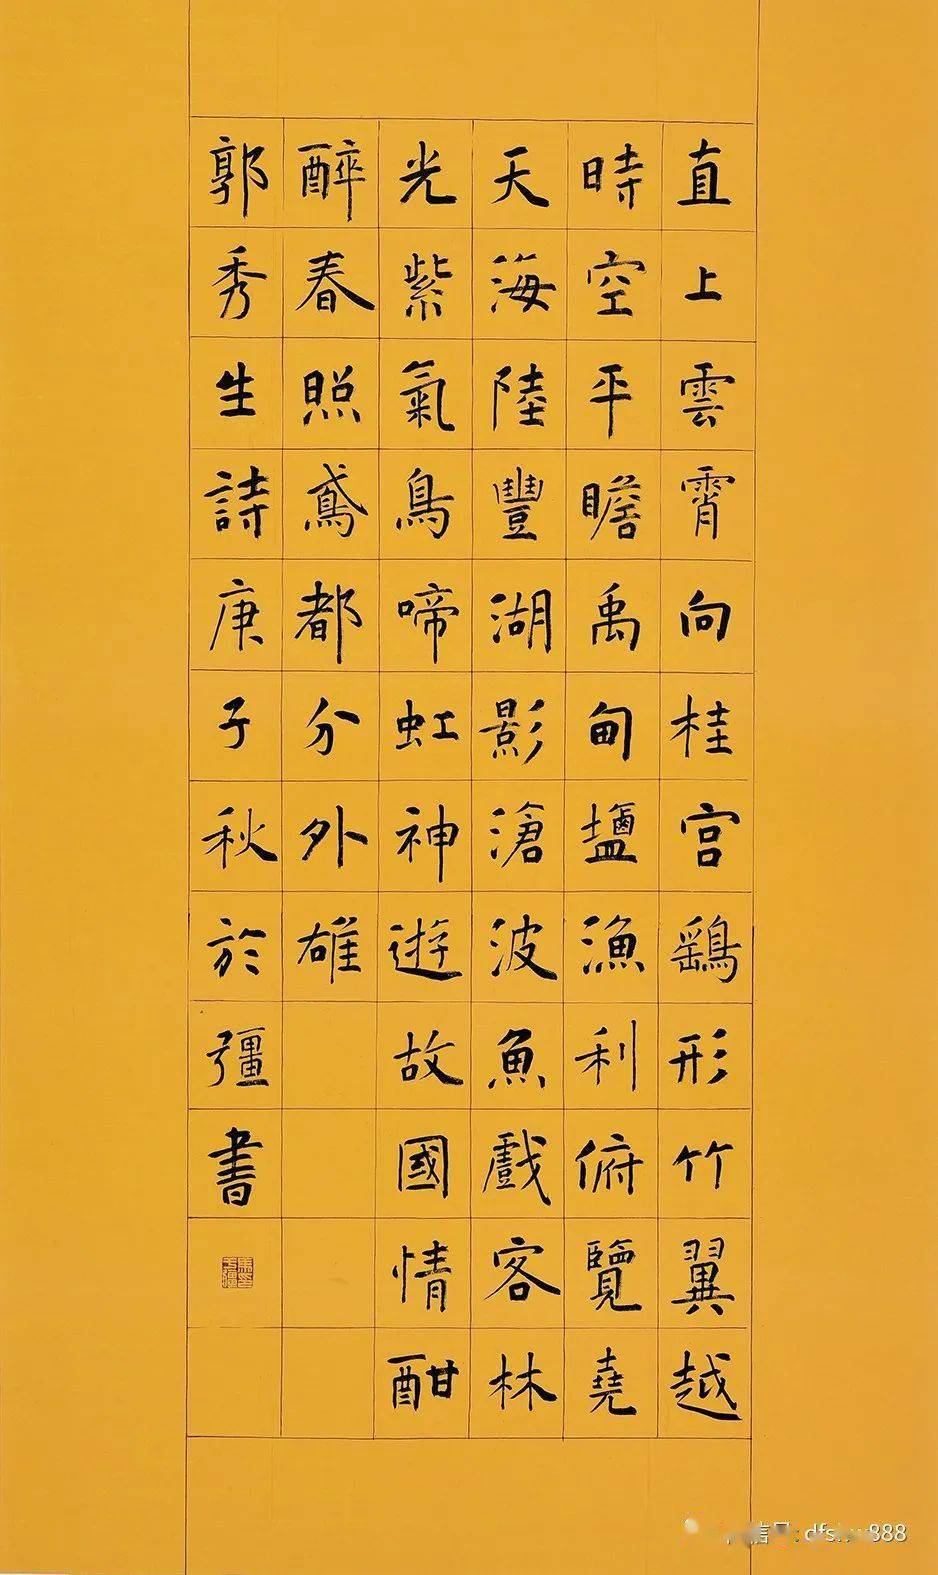 直上雲霄向桂宫鷂形竹翼越
時空平瞻禹甸鹽漁利俯覽堯
天海陸豐湖影滄波魚戲客林
光紫氣鳥啼虹神遊故國情酣
醉春照鳶都分外雄
郭秀生詩庚子秋於彊書